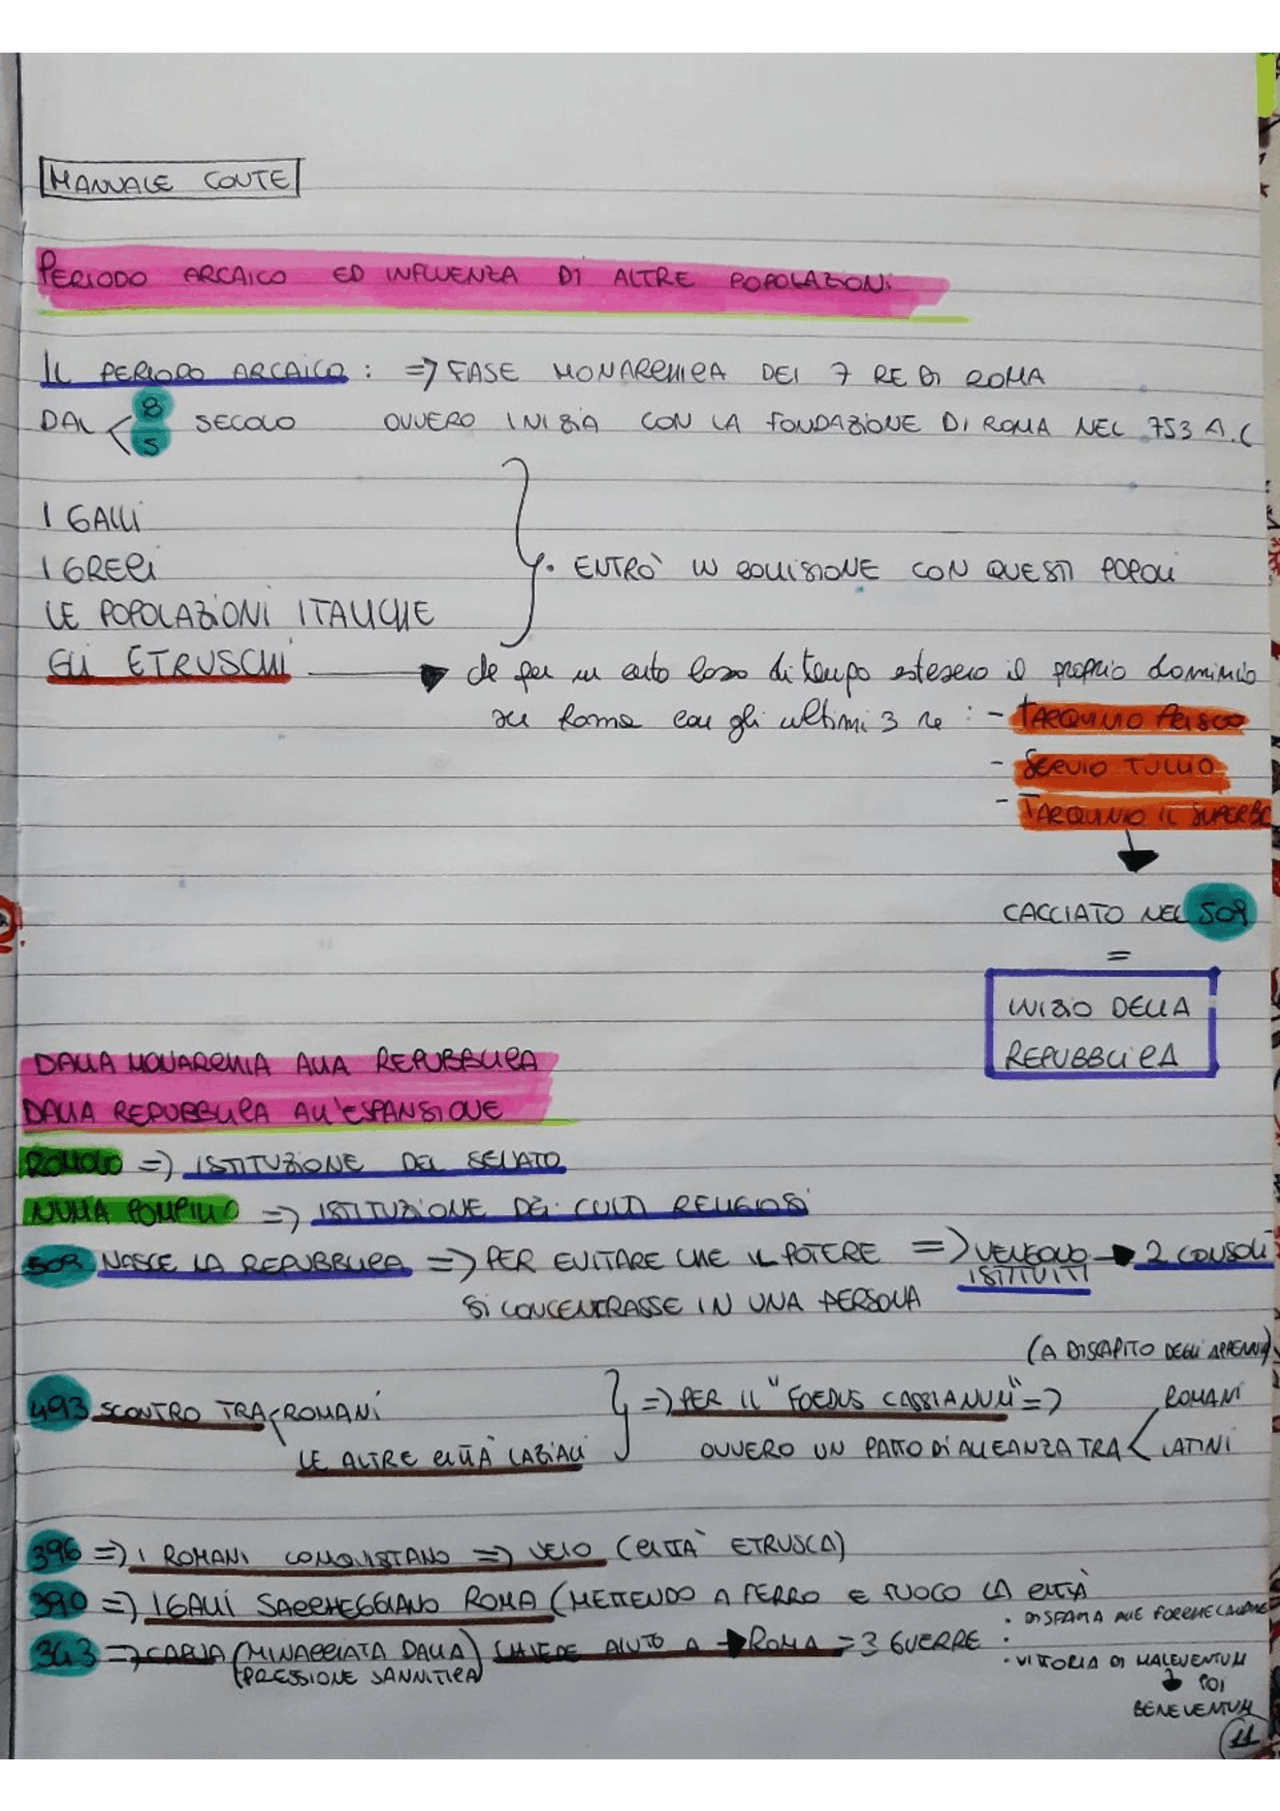 MANUALE CONTE
PERIODO ARCAICO ED INFLUENZA DI ALTRE POPOLAZIONI
IL PERIODO ARCAICO : => FASE MONARCHICA DEI 7 RE DI ROMA
DAL < 8 5 SECOLO OVVERO INIZIA CON LA FONDAZIONE DI ROMA NEL 753 A.C
I GALLI
I GRECI
• ENTRÒ IN COLLISIONE CON QUESTI POPOLI
LE POPOLAZIONI ITALICHE
GLI ETRUSCHI → che per un certo lasso di tempo estesero il proprio dominio
su Roma con gli ultimi 3 re : - TARQUINIO PRISCO
- SERVIO TULLIO
- TARQUINIO IL SUPERBO
CACCIATO NEL 509
=
INIZIO DELLA
REPUBBLICA
DALLA MONARCHIA ALLA REPUBBLICA
DALLA REPUBBLICA ALL'ESPANSIONE
ROMOLO => ISTITUZIONE DEL SENATO
NUMA POMPILIO => ISTITUZIONE DEI CULTI RELIGIOSI
509 NASCE LA REPUBBLICA => PER EVITARE CHE IL POTERE => VENGONO → 2 CONSOLI
SI CONCENTRASSE IN UNA PERSONA ISTITUITI
(A DISCAPITO DEGLI APPENNI)
493 SCONTRO TRA ROMANI => PER IL "FOEDUS CASSIANUM" => ROMANI
LE ALTRE CITTÀ LAZIALI OVVERO UN PATTO DI ALLEANZA TRA < LATINI
396 => I ROMANI CONQUISTANO => VEIO (CITTÀ ETRUSCA)
390 => I GALLI SACCHEGGIANO ROMA (METTENDO A FERRO E FUOCO LA CITTÀ
• DISFATTA ALLE FORCHE CAUDINE
343 => CAPUA (MINACCIATA DALLA) CHIEDE AIUTO A → ROMA = 3 GUERRE :
(PRESSIONE SANNITICA) • VITTORIA DI MALEVENTUM
↓ POI
BENEVENTUM
11